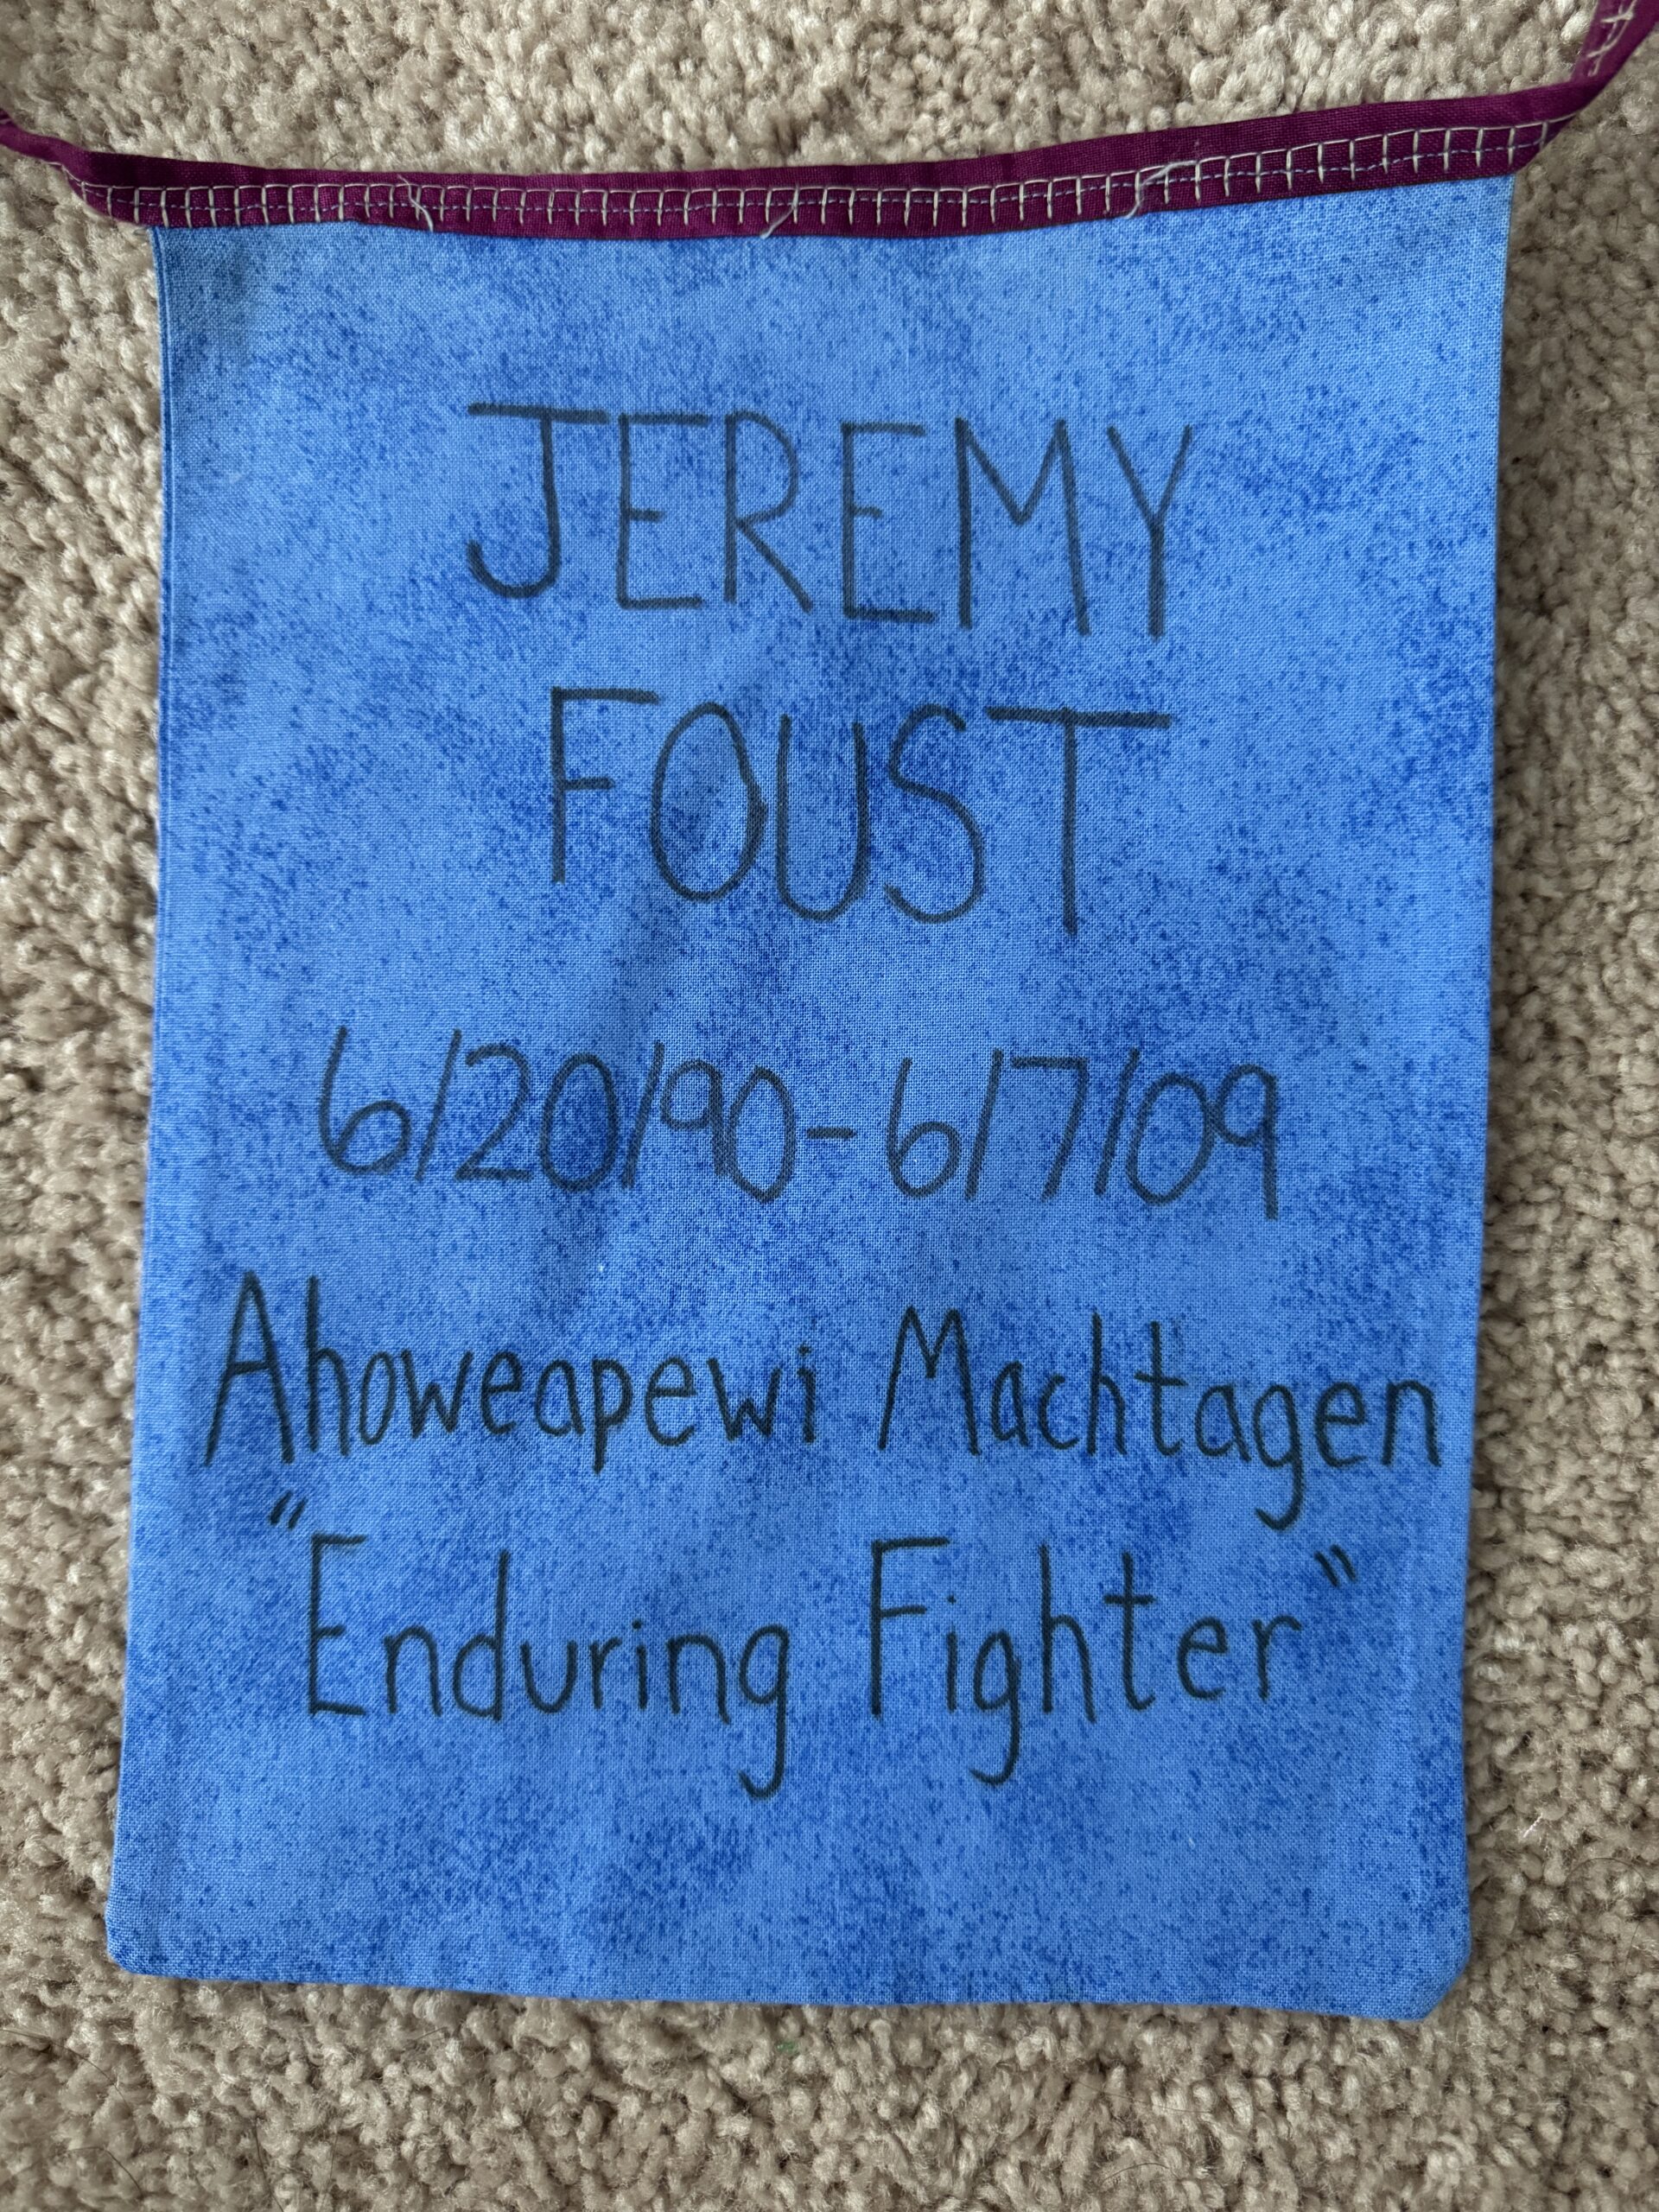 JEREMY
FOUST
6/20/90-6/7/09
Ahoweapewi Machtagen
"Enduring Fighter"